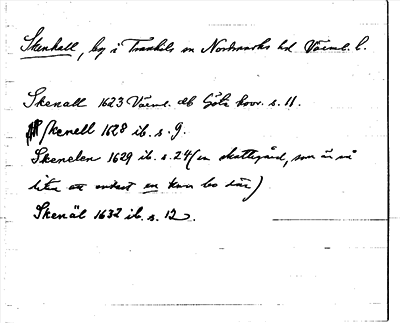 Skenhall, by i Trankils sn Nordmarks hd Värml. l.
Skenall 1623 Värml. Äb Göta hovr. s. 11.
Skenell 1628 ib. s. 9.
Skenelen 1629 ib. s. 24 (en skattegård, som är så
liten att endast en kan bo där)
Skenäl 1632 ib. s. 12.